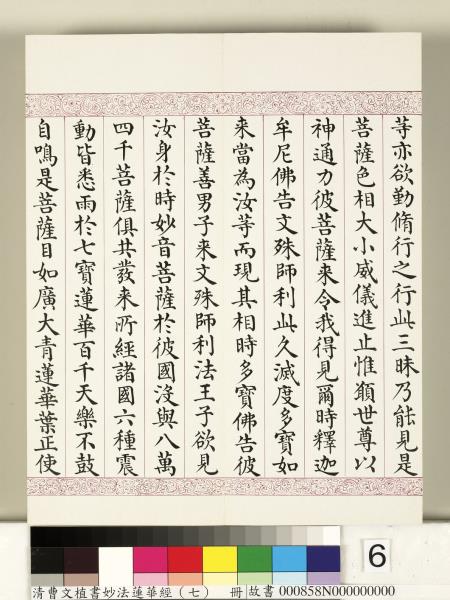 等亦欲勤脩行之行此三昧乃能見是
菩薩色相大小威儀進止惟願世尊以
神通力彼菩薩来令我得見爾時釋迦
牟尼佛告文殊師利此久滅度多寶如
来當為汝等而現其相時多寶佛告彼
菩薩善男子来文殊師利法王子欲見
汝身於時妙音菩薩於彼國沒與八萬
四千菩薩俱共發来所經諸國六種震
動皆悉雨於七寶蓮華百千天樂不鼓
自鳴是菩薩目如廣大青蓮華葉正使
6
清曹文植書妙法蓮華經（七） 冊 故書 000858N000000000